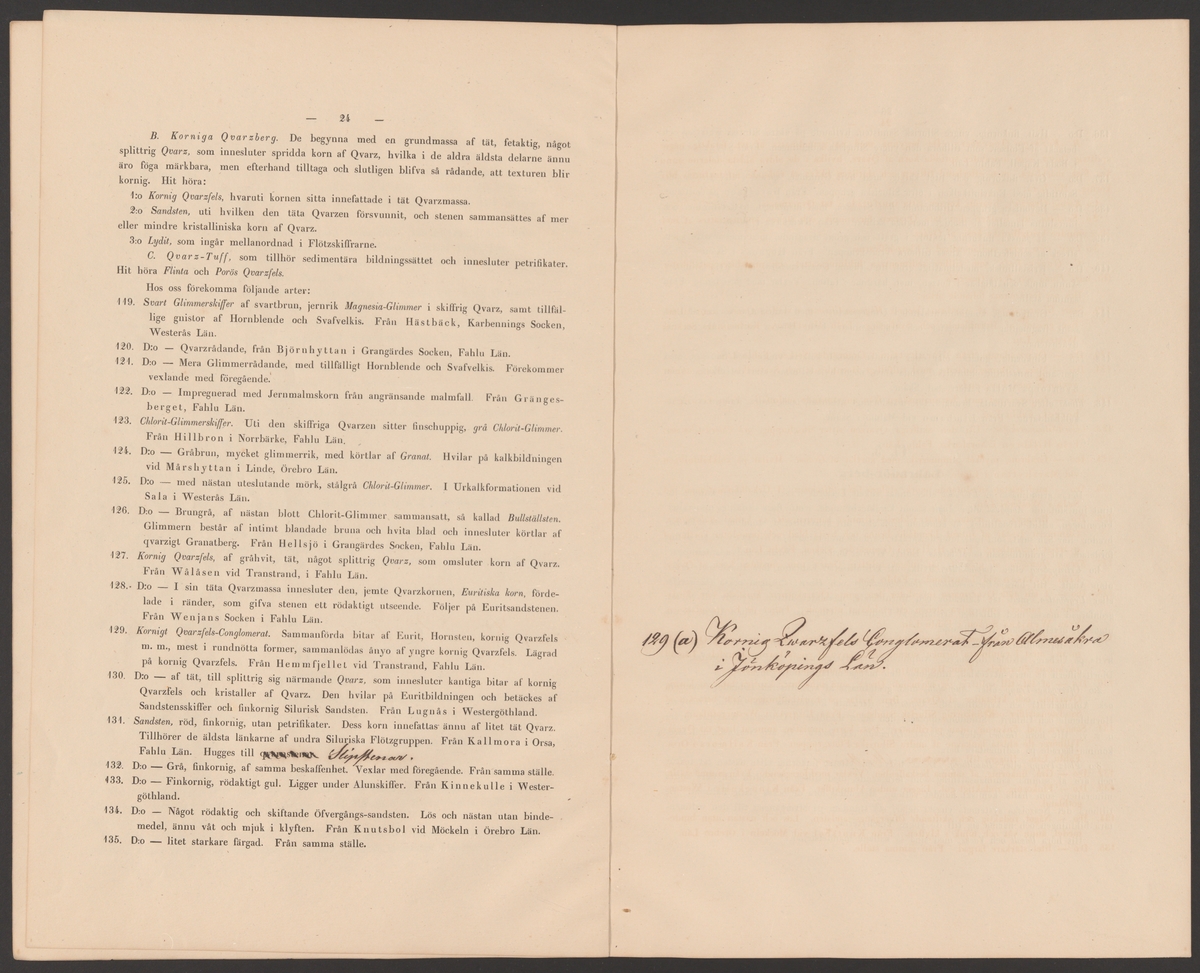 — 24 —
B. Korniga Qvarzberg. De begynna med en grundmassa af tät, fetaktig, något
splittrig Qvarz, som innesluter spridda korn af Qvarz, hvilka i de aldra äldsta delarne ännu
äro föga märkbara, men efterhand tilltaga och slutligen blifva så rådande, att texturen blir
kornig. Hit höra:
1:o Kornig Qvarzfels, hvaruti kornen sitta innefattade i tät Qvarzmassa.
2:o Sandsten, uti hvilken den täta Qvarzen försvunnit, och stenen sammansättes af mer
eller mindre kristalliniska korn af Qvarz.
3:o Lydit, som ingår mellanordnad i Flötzskiffrarne.
C. Qvarz-Tuff, som tillhör sedimentära bildningssättet och innesluter petrifikater.
Hit höra Flinta och Porös Qvarzfels.
Hos oss förekomma följande arter:
119. Svart Glimmerskiffer af svartbrun, jernrik Magnesia-Glimmer i skiffrig Qvarz, samt tillfäl-
lige gnistor af Hornblende och Svafvelkis. Från Hästbäck, Karbennings Socken,
Westerås Län.
120. D:o — Qvarzrådande, från Björnhyttan i Grangärdes Socken, Fahlu Län.
121. D:o — Mera Glimmerrådande, med tillfälligt Hornblende och Svafvelkis. Förekommer
vexlande med föregående.
122. D:o — Impregnerad med Jernmalmskorn från angränsande malmfall. Från Gränges-
berget, Fahlu Län.
123. Chlorit-Glimmerskiffer. Uti den skiffriga Qvarzen sitter finschuppig, grå Chlorit-Glimmer.
Från Hillbron i Norrbärke, Fahlu Län.
124. D:o — Gråbrun, mycket glimmerrik, med körtlar af Granat. Hvilar på kalkbildningen
vid Mårshyttan i Linde, Örebro Län.
125. D:o — med nästan uteslutande mörk, stålgrå Chlorit-Glimmer. I Urkalkformationen vid
Sala i Westerås Län.
126. D:o — Brungrå, af nästan blott Chlorit-Glimmer sammansatt, så kallad Bullställsten.
Glimmern består af intimt blandade bruna och hvita blad och innesluter körtlar af
qvarzigt Granatberg. Från Hellsjö i Grangärdes Socken, Fahlu Län.
127. Kornig Qvarzfels, af gråhvit, tät, något splittrig Qvarz, som omsluter korn af Qvarz.
Från Wålåsen vid Transtrand, i Fahlu Län.
128. D:o — I sin täta Qvarzmassa innesluter den, jemte Qvarzkornen, Euritiska korn, förde-
lade i ränder, som gifva stenen ett rödaktigt utseende. Följer på Euritsandstenen.
Från Wenjans Socken i Fahlu Län.
129. Kornigt Qvarzfels-Conglomerat. Sammanförda bitar af Eurit, Hornsten, kornig Qvarzfels
m. m., mest i rundnötta former, sammanlödas ånyo af yngre kornig Qvarzfels. Lägrad
på kornig Qvarzfels. Från Hemmfjellet vid Transtrand, Fahlu Län.
130. D:o — af tät, till splittrig sig närmande Qvarz, som innesluter kantiga bitar af kornig
Qvarzfels och kristaller af Qvarz. Den hvilar på Euritbildningen och betäckes af
Sandstensskiffer och finkornig Silurisk Sandsten. Från Lugnås i Westergöthland.
131. Sandsten, röd, finkornig, utan petrifikater. Dess korn innefattas ännu af litet tät Qvarz.
Tillhörer de äldsta länkarne af undra Siluriska Flötzgruppen. Från Kallmora i Orsa,
Fahlu Län. Hugges till Slipstenar.
132. D:o — Grå, finkornig, af samma beskaffenhet. Vexlar med föregående. Från samma ställe.
133. D:o — Finkornig, rödaktigt gul. Ligger under Alunskiffer. Från Kinnekulle i Wester-
göthland.
134. D:o — Något rödaktig och skiftande Öfvergångs-sandsten. Lös och nästan utan binde-
medel, ännu våt och mjuk i klyften. Från Knutsbol vid Möckeln i Örebro Län.
135. D:o — litet starkare färgad. Från samma ställe.
129 (a) Kornig Qwarzfels Conglomerat - från Almesåkra
i Jönköpings Län.